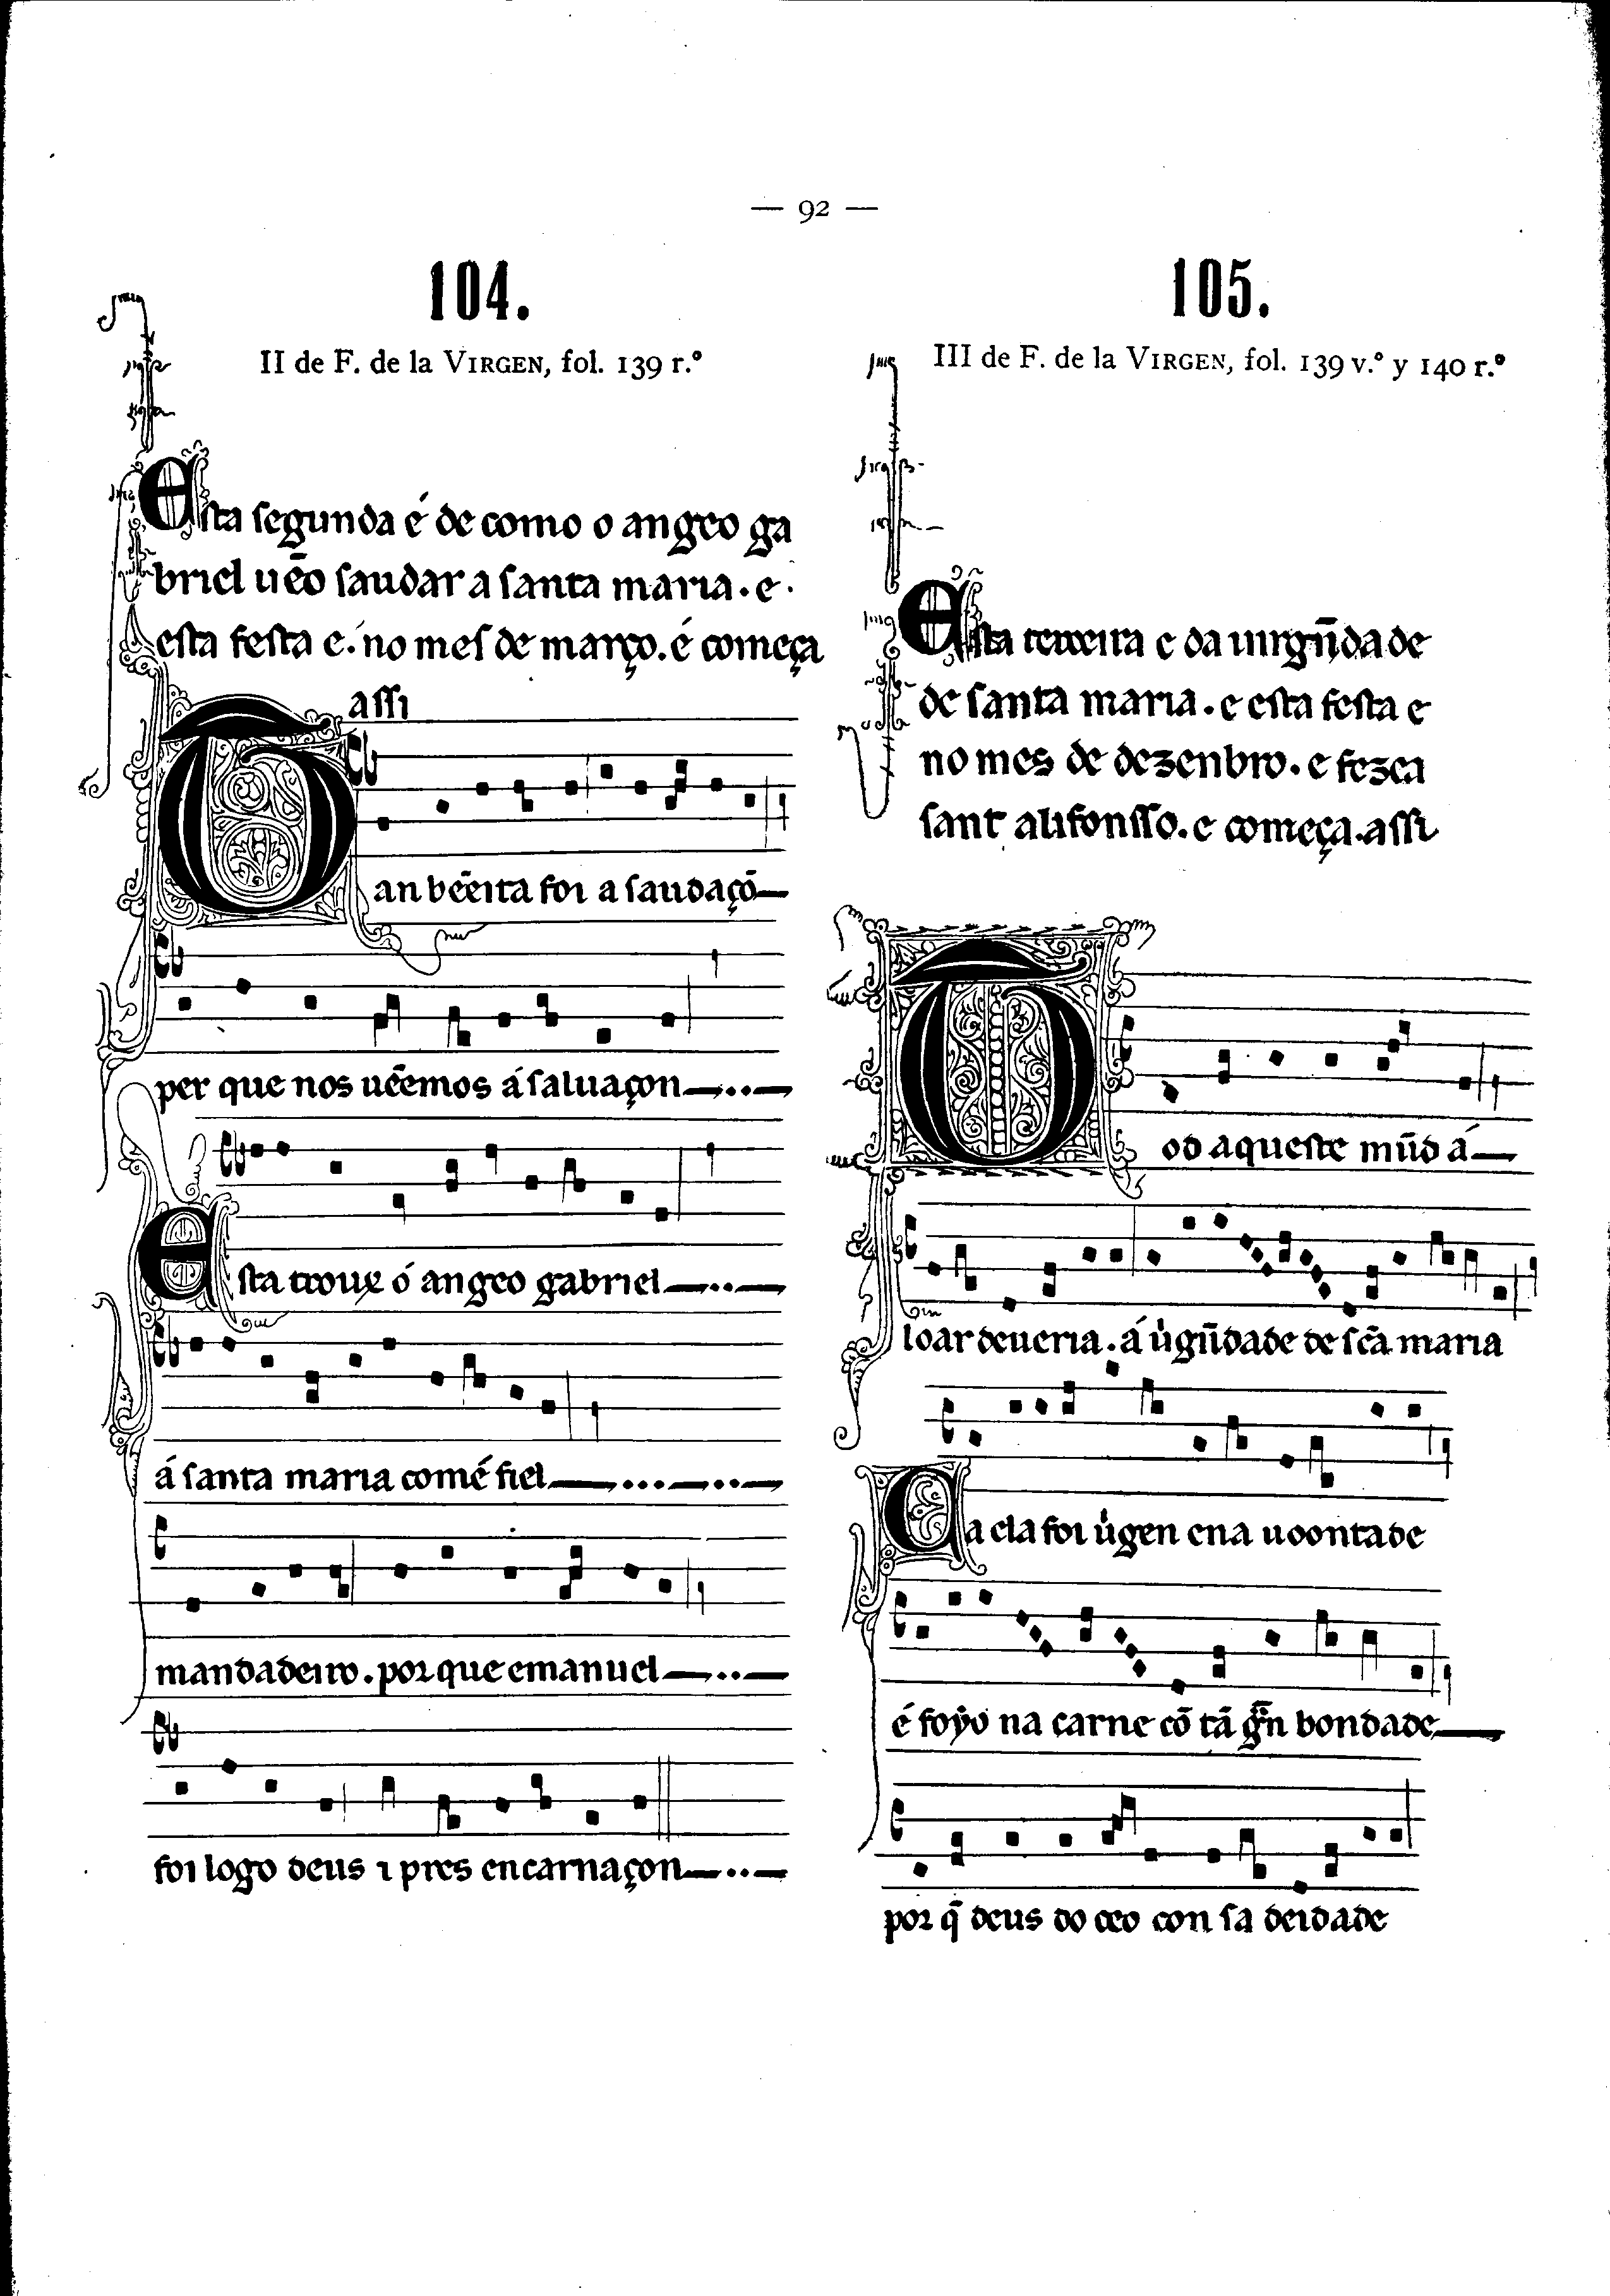 — 92 —
104.
II de F. de la VIRGEN, fol. 139 r.º
Esta segunda é de como o angeo ga
briel uẽo saudar a santa maria. e.
esta festa e. no mes de março. é começa
assi
Tan bẽeita foi a saudaçõ
per que nos uẽemos á saluaçon
Esta trouxe ó angeo gabriel
á santa maria comé fiel
mandadeiro. por que emanuel
foi logo deus ⁊ pres encarnaçon
105.
III de F. de la VIRGEN, fol. 139 v.º y 140 r.º
Esta terceira e da uirgĩidade
de santa maria. e esta festa e
no mes de dezenbro. e fezea
sant alifonsso. e começa. assi
Tod aqueste mũd á
loar deueria. á u̇gĩidade de sc̃a maria
Ca ela foi u̇gen ena uoontade
é foyo na carne cõ tã gr̃n bondade
por q̃ deus do ceo con sa deidade